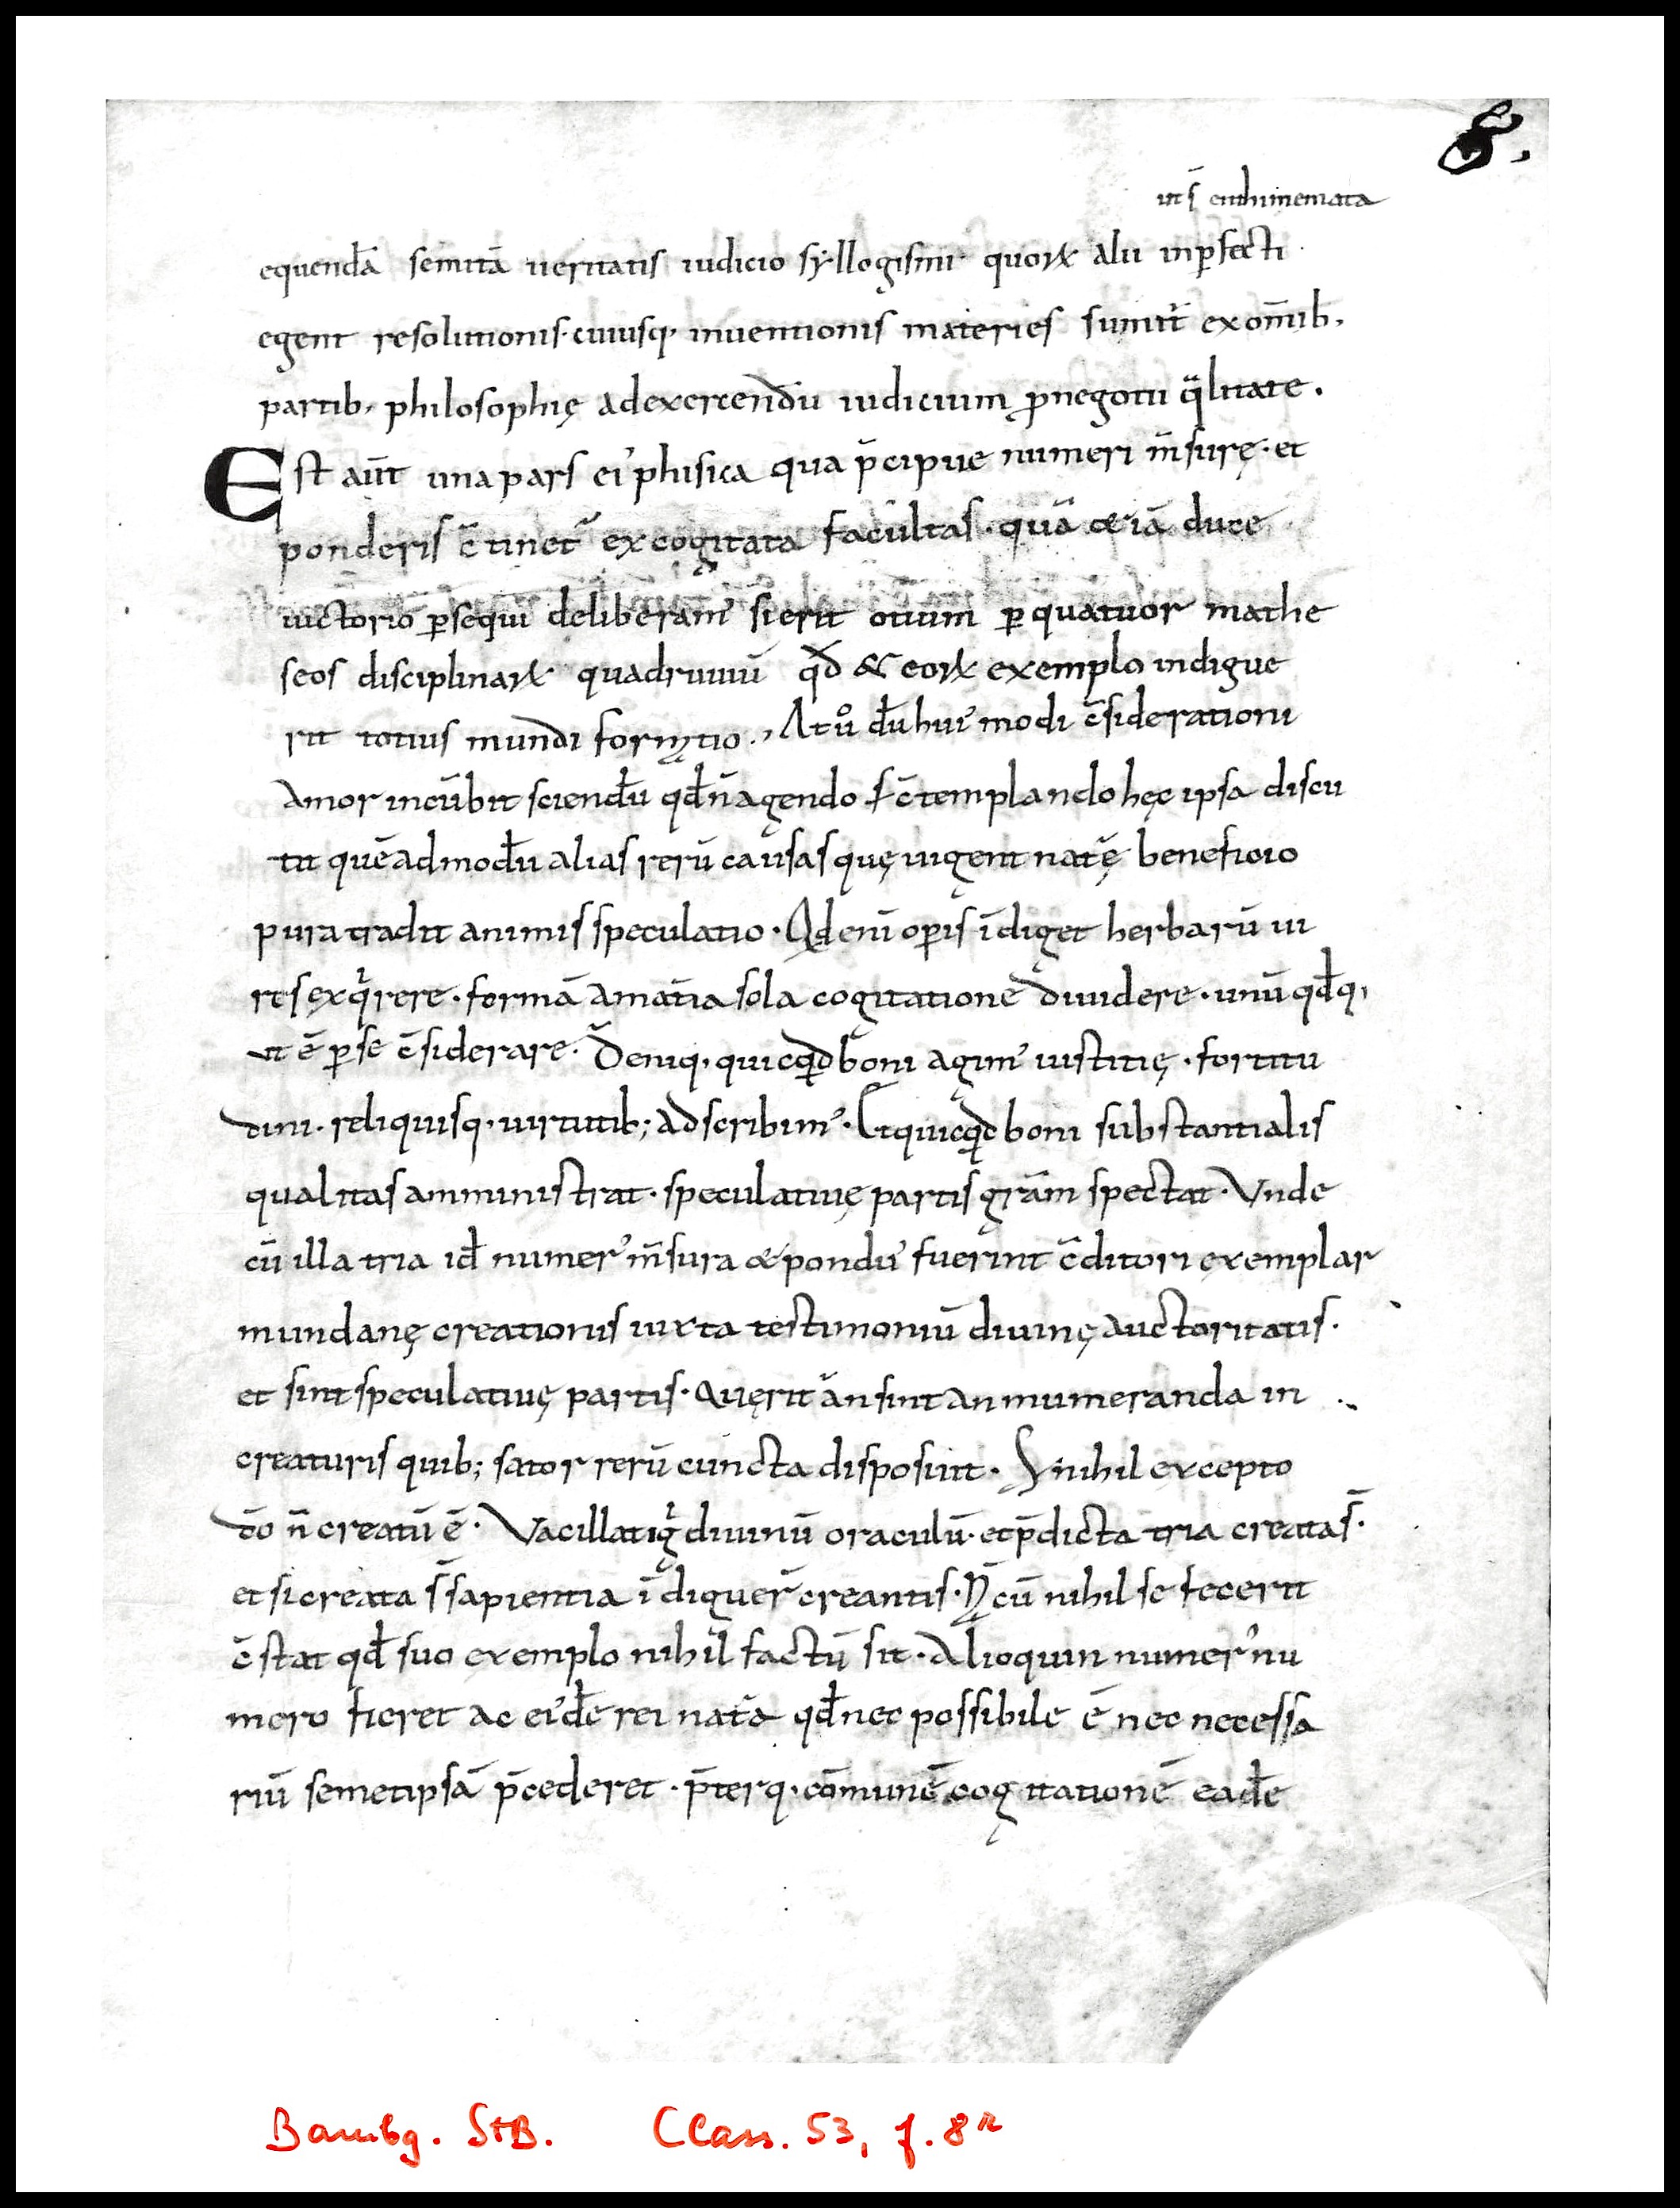 8.
ut s̄ enthimemata
equendā semitā ueritatis iudicio syllogismi quoꝝ alii inꝑfecti
egent resolutionis· cuiusq; inuentionis materies sumit᷒ ex om̄ib,
partib, philosophię ad exercendū iudicium ꝓ negotii qͣlitate.
Est aūt una pars ei᾽ phisica qua p̄cipue numeri m̄surę· et
ponderis c̄tinet᷒ excogitata facultas· quā & iā duce
uictorio ꝑsequi deliberam᾽ si erit otium ꝑ quatuor mathe
seos disciplinaꝝ quadruuiū qd̄ & eoꝝ exemplo indigue
rit totius mundi formatio., At ůo dū hui᾽ modi c̄siderationi
Amor incūbit sciendū qd̄ n̄ agendo s; c̄templando hęc ipsa discu
tit quēadmodū alias rerū causas quę uigent natᷓę beneficio
pura tradit animis speculatio· Qd enī oꝑis īdiget herbarū ui
res exqͥrere· formā a mat̄ia sola cogitatione diuidere· unū qd̄q,
ut ē ꝑ se c̄siderare· Deniq, quicqd boni agim᾽ iustitię· fortitu
dini· reliquisq· uirtutib; ad scribim᾽· Et quicqd boni substantialis
qualitas amministrat· speculatiuę partis grām spectat· Vnde
cū illa tria id̄ numer᾽ m̄sura & pondu᾽ fuerint c̄ditori exemplar
mundanę creationis iuxta testimoniū diuinę auctoritatis·
et sint speculatiuę partis· Quęrit᷒ an sint annumeranda in
creaturis quib; sator rerū cuncta disposuit· S; nihil excepto
dō n̄ creatū ē· Vacillat igͥ diuinū oraculū· et p̄dicta tria creata s̄·
et si creata s̄ sapientia īdiguer̄ creantis· N̄ cū nihil se fecerit
c̄stat qd̄ suo exemplo nihil factū sit· Alioquin numer᾽ nu
mero fieret ac ei᾽dē rei natᷓa qd̄ nec possibile ē nec necessa
riū semetipsā p̄cederet· p̄terq, cōmunē cogitationē eadē
Bambg. StB. Class. 53, f. 8r